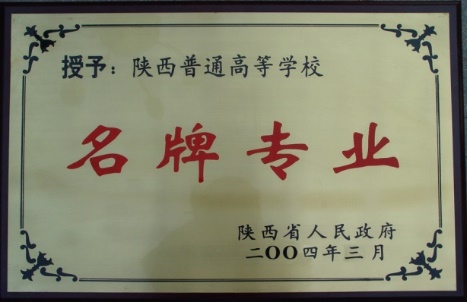 授予：陕西普通高等学校
名牌专业
陕西省人民政府
二〇〇四年三月